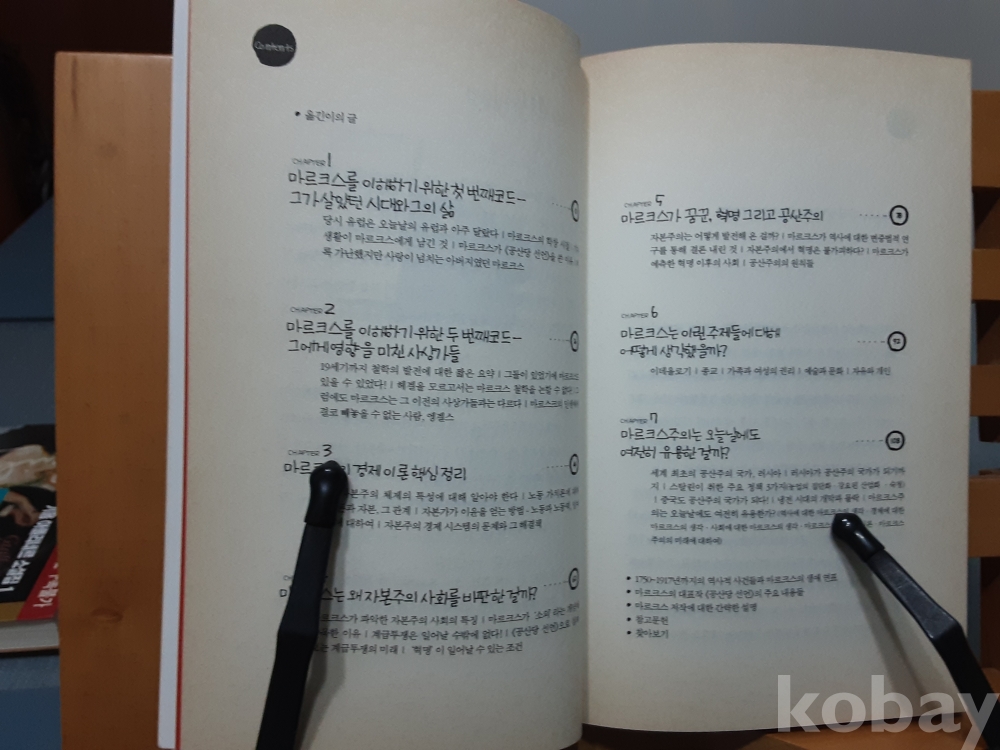 Contents
• 옮긴이의 글
CHAPTER 1
마르크스를 이해하기 위한 첫 번째 코드―
그가 살았던 시대와 그의 삶
당시 유럽은 오늘날의 유럽과 아주 달랐다 | 마르크스의 학창 시절
생활이 마르크스에게 남긴 것 | 마르크스가 《공산당 선언》을 쓴 이유
록 가난했지만 사랑이 넘치는 아버지였던 마르크스
CHAPTER 2
마르크스를 이해하기 위한 두 번째 코드―
그에게 영향을 미친 사상가들
19세기까지 철학의 발전에 대한 짧은 요약 | 그들이 있었기에 마르크스도
있을 수 있었다! | 헤겔을 모르고서는 마르크스 철학을 논할 수 없다
럼에도 마르크스는 그 이전의 사상가들과는 다르다 | 마르크스의 인생에서
결코 빼놓을 수 없는 사람, 엥겔스
CHAPTER 3
경제 이론 핵심 정리
자본주의 체제의 특성에 대해 알아야 한다 | 노동 가치론에
과 자본, 그 관계 | 자본가가 이윤을 얻는 방법 - 노동과 노동력
에 대하여 | 자본주의 경제 시스템의 문제와 그 해결책
는 왜 자본주의 사회를 비판한 걸까?
마르크스가 파악한 자본주의 사회의 특징 | 마르크스가 '소외' 라는
한 이유 | 계급투쟁은 일어날 수밖에 없다! | 《공산당 선언》으로
는 계급투쟁의 미래 | '혁명' 이 일어날 수 있는 조건
CHAPTER 5
마르크스가 꿈꾼, 혁명 그리고 공산주의
자본주의는 어떻게 발전해 온 걸까? | 마르크스가 역사에 대한 변증법적 연
구를 통해 결론 내린 것 | 자본주의에서 혁명은 불가피하다! | 마르크스가
예측한 혁명 이후의 사회 | 공산주의의 원칙들
CHAPTER 6
마르크스는 이런 주제들에 대해
어떻게 생각했을까?
이데올로기 | 종교 | 가족과 여성의 권리 | 예술과 문화 | 자유와 개인
CHAPTER 7
마르크스주의는 오늘날에도
여전히 유용한 걸까?
108
세계 최초의 공산주의 국가, 러시아 | 러시아가 공산주의 국가가 되기까
지 | 스탈린이 취한 주요 정책 3가지(농업의 집단화 · 강요된 산업화 · 숙청)
| 중국도 공산주의 국가가 되다! | 냉전 시대의 개막과 몰락 | 마르크스주
의는 오늘날에도 여전히 유용한가? (역사에 대한 마르크스의 생각 · 경제에 대한
마르크스의 생각 · 사회에 대한 마르크스의 생각 · 마르크스 · 마르크스
주의의 미래에 대하여)
• 1750~1917년까지의 역사적 사건들과 마르크스의 생애 연표
• 마르크스의 대표작 《공산당 선언》의 주요 내용들
• 마르크스 저작에 대한 간략한 설명
• 참고문헌
• 찾아보기
kobay